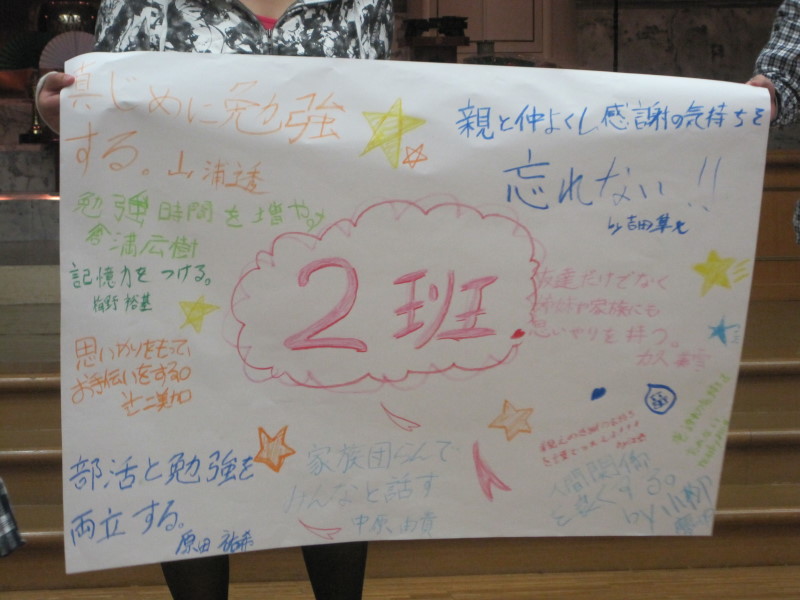 真じめに勉強
する。山浦透
勉強時間を増やす
倉満広樹
記憶力をつける。
思いやりをもって
お手伝いをする。
部活と勉強を
両立する。
原田
2班
親と仲よくし感謝の気持ちを
忘れない!!
by吉田
友達だけでなく
姉妹や家族にも
思いやりを持つ。
家族団らんで
みんなと話す
中原由貴
人間関係
by